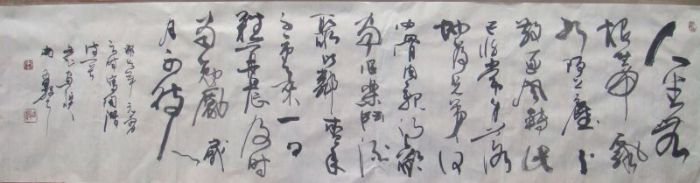 人生无
根蒂飘
如陌上尘分
散逐风转此
已非常身落
地为兄弟何
必骨肉亲得欢
当作乐斗酒
聚比邻盛年
不重来一日
难再晨及时
当勉励岁
月不待人